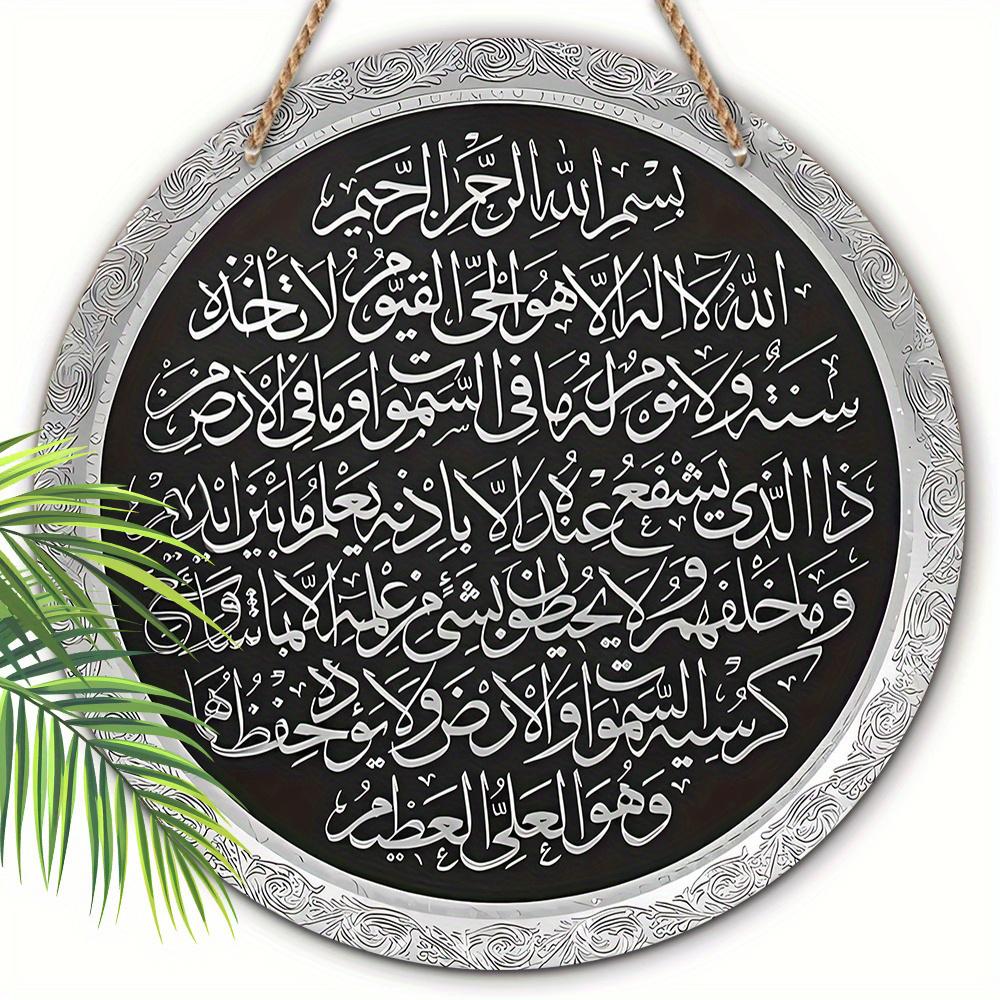 بسم الله الرحمن الرحيم
الله لا اله الا هو الحي القيوم لا تأخذه
سنة ولا نوم له ما في السموات وما في الارض من
ذا الذي يشفع عنده الا باذنه يعلم ما بين ايديهم
وما خلفهم ولا يحيطون بشيء من علمه الا بما شاء وسع
كرسيه السموات والارض ولا يؤده حفظهما
وهو العلي العظيم